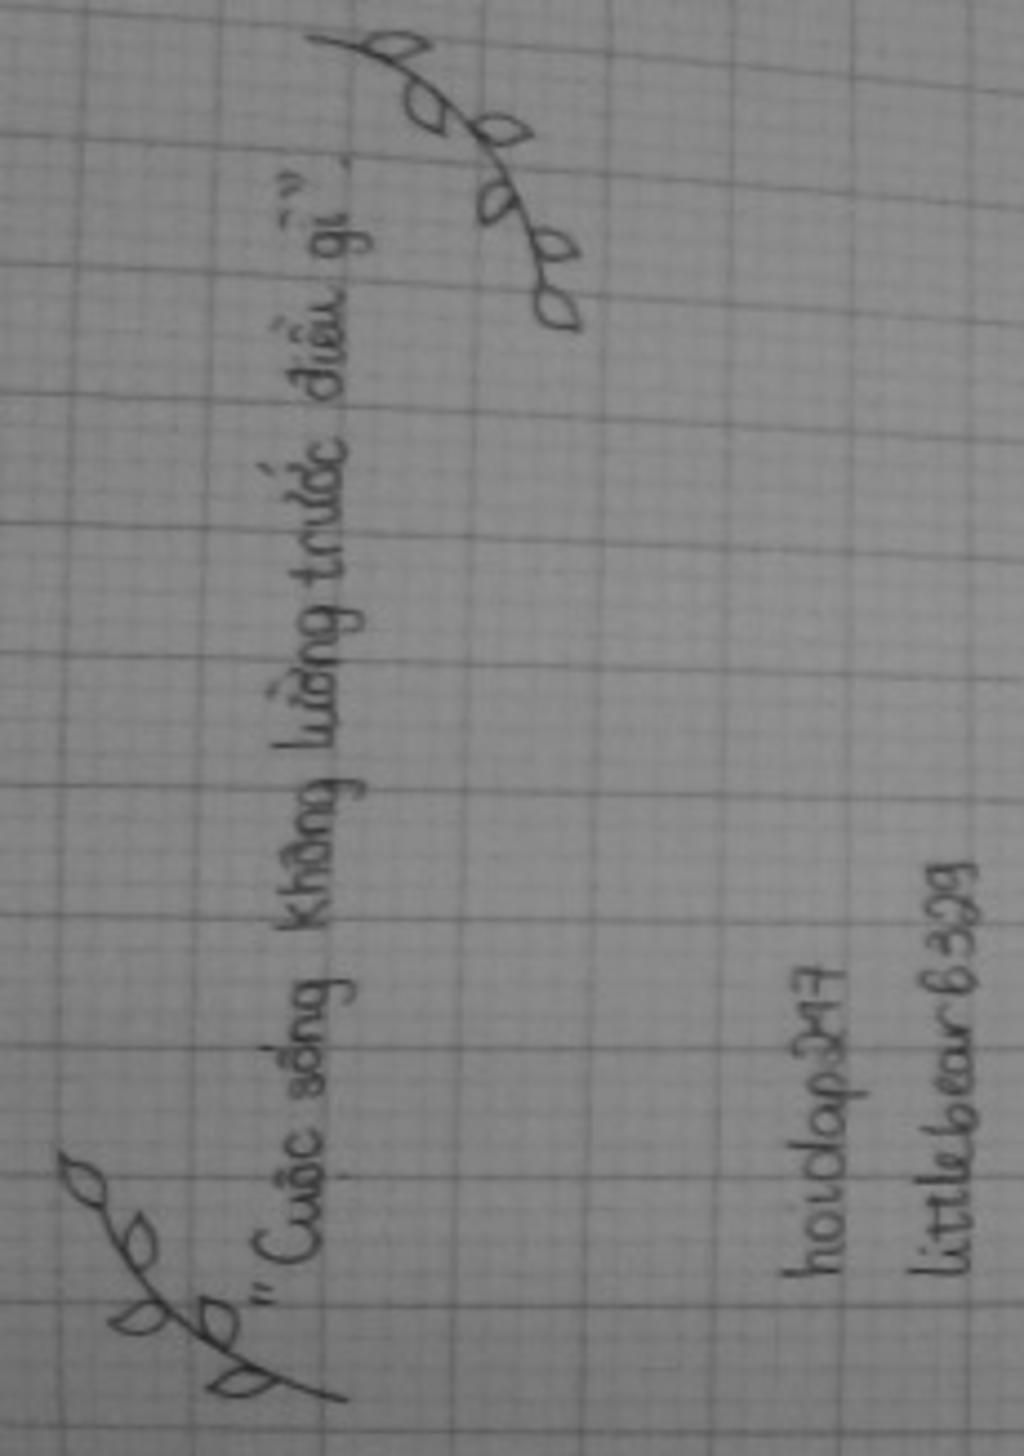 "Cuộc sống không lường trước điều gì".
hoidap247
littlebear6329